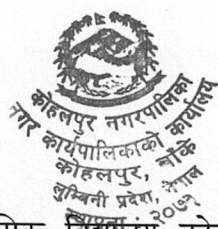 कोहलपुर नगरपालिका
नगर कार्यपालिकाको कार्यालय
कोहलपुर, बाँके
लुम्बिनी प्रदेश, नेपाल
स्थापना : २०७१